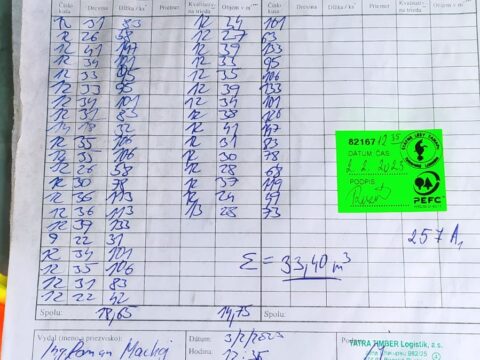 Číslo kusa Drevina Dĺžka / ks Priemer Kvalitatív- na trieda Objem v m³ Číslo kusa Drevina Dĺžka / ks Priemer Kvalitatív- na trieda Objem v m³
12 31 83 12 34 101
12 26 58 12 27 63
12 41 147 12 39 133
12 34 101 12 33 95
12 33 95 12 35 106
12 33 95 12 39 133
12 34 101 12 34 101
12 31 83 12 38 126
18 32 12 41 147
12 35 106 12 31 83
12 35 106 12 30 78
12 26 58 12 28 68
12 30 78 12 37 119
12 36 113 12 31 97
12 36 113 13 28 73
12 39 133
9 22 31
12 34 101
12 35 106
12 31 83
12 22 42
82167 12 35
DÁTUM ČAS
2. 2. 2023
PODPIS
PEFC
257 A,
Σ = 33,40 m³
Spolu: 18,65 Spolu: 14,75
Vydal (meno a priezvisko): Dátum: 3/2/2023
Ing. Roman Machaj Hodina 12:35
TATRA TIMBER Logistik, a.s.